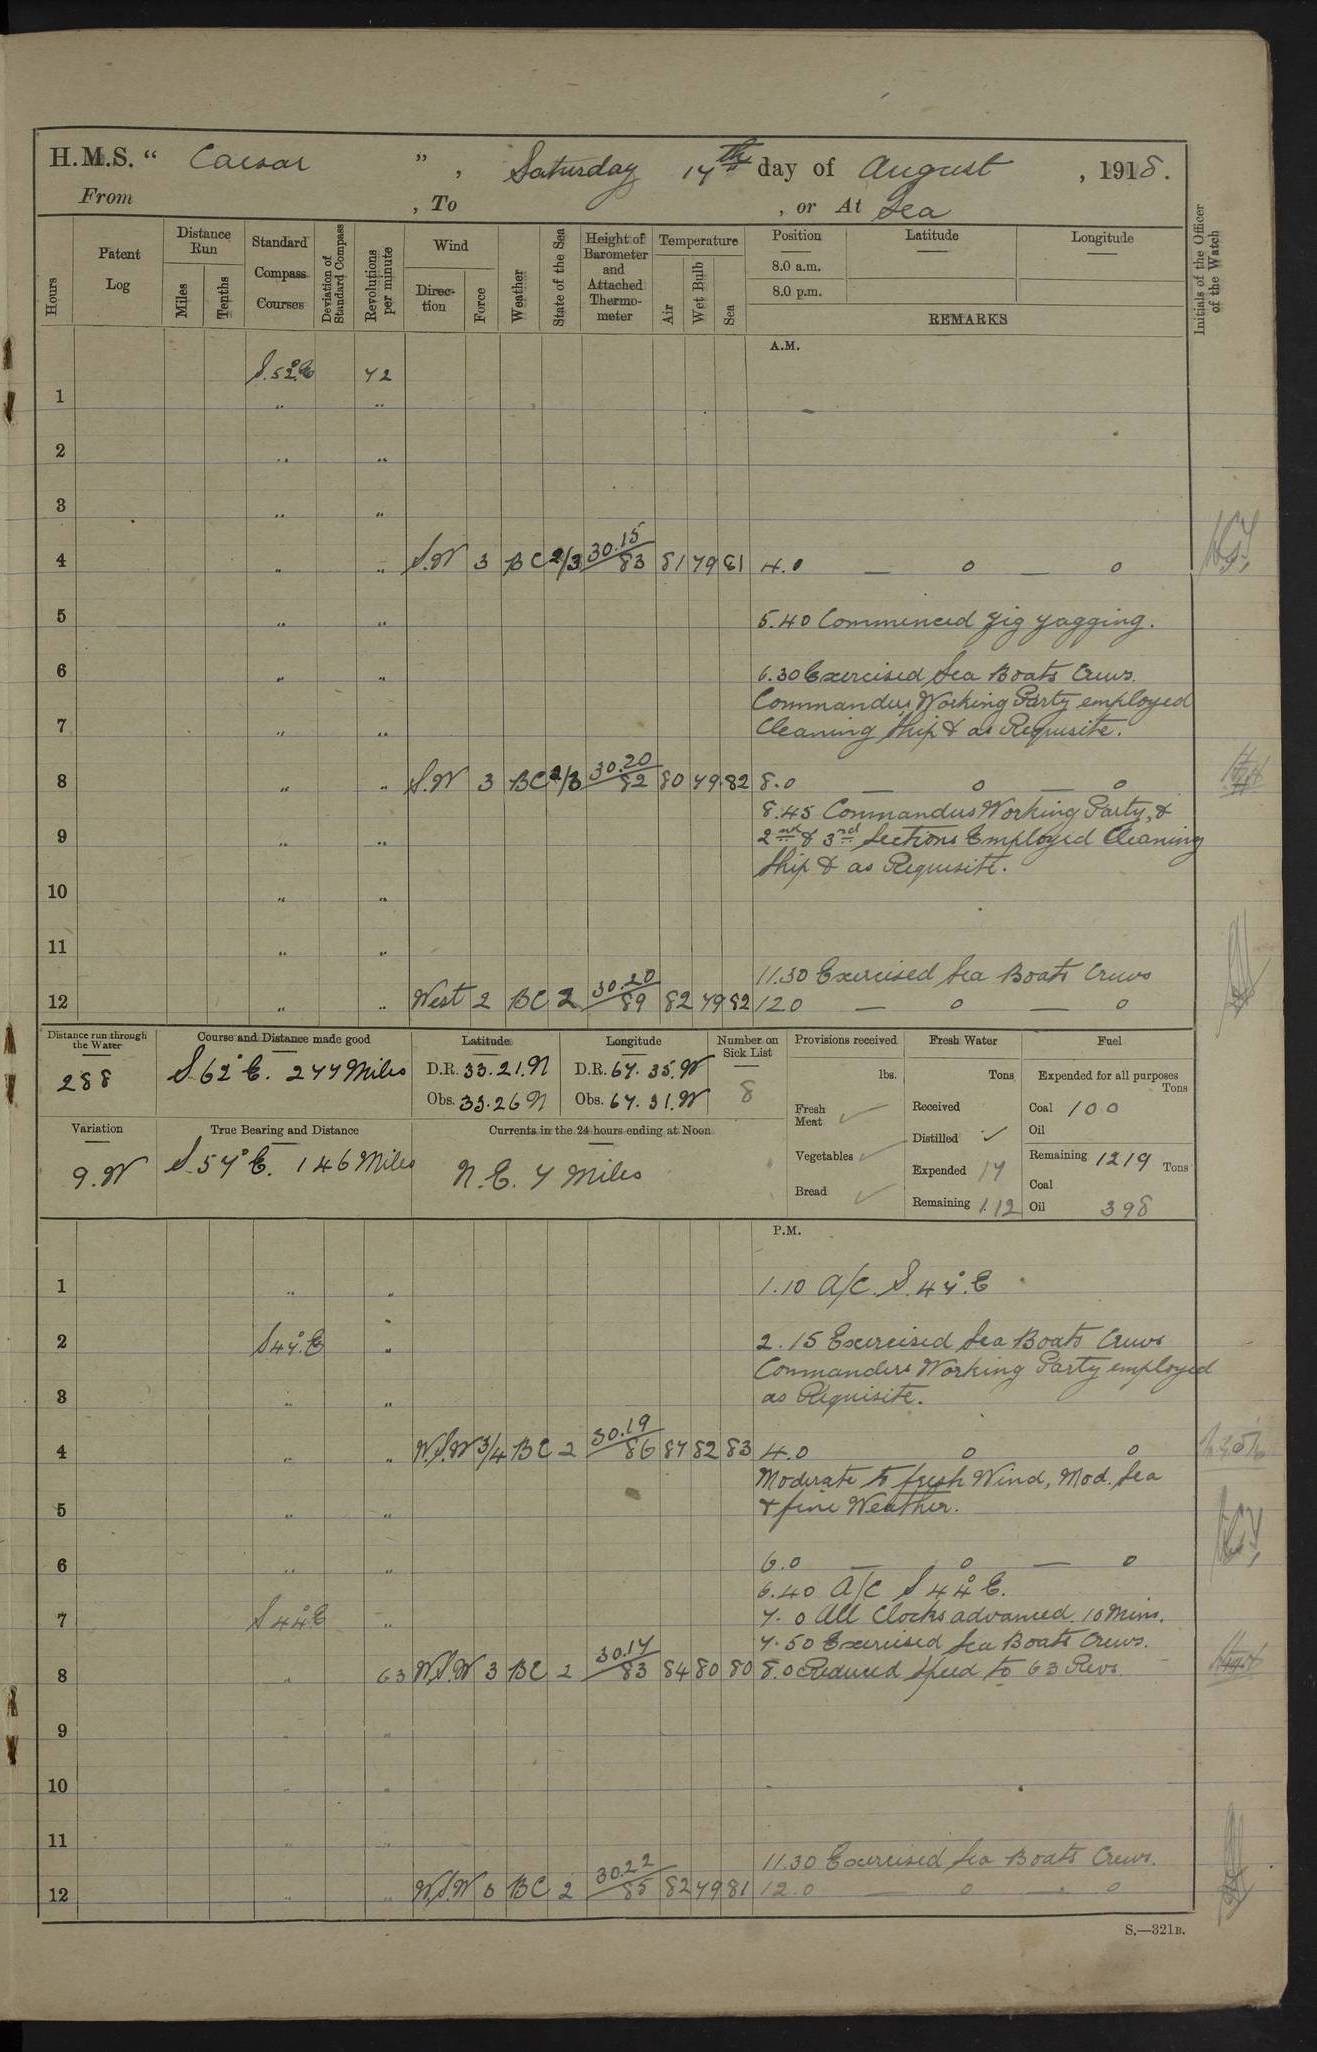 H.M.S. “ Caesar ” , Saturday 17th day of August , 1918.
From , To , or At Sea
Hours
Patent Log
Distance Run
Miles
Tenths
Standard Compass Courses
Deviation of Standard Compass
Revolutions per minute
Wind
Direction
Force
Weather
State of the Sea
Height of Barometer and Attached Thermometer
Temperature
Air
Wet Bulb
Sea
Position
8.0 a.m.
8.0 p.m.
Latitude
Longitude
REMARKS
Initials of the Officer of the Watch
A.M.
S.52°E 72
1 „ „
2 „ „
3 „ „
4 „ „ S.W 3 BC 2/3 30.15/83 81 79 81 4.0 — o — o
5 „ „ 5.40 Commenced Zig Zagging.
6 „ „ 6.30 Exercised Sea Boats Crews.
Commanders Working Party employed
7 „ „ Cleaning Ship & as Requisite.
8 „ „ S.W 3 BC 2/3 30.20/82 80 79 82 8.0 — o — o
8.45 Commanders Working Party, &
9 „ „ 2nd & 3rd Sections Employed Cleaning
Ship & as Requisite.
10 „ „
11 „ „
11.30 Exercised Sea Boats Crews
12 „ „ West 2 BC 2 30.20/89 82 79 82 12.0 — o — o
Distance run through the Water
288
Course and Distance made good
S.62°E. 277 Miles
Latitude
D.R. 33.21.N
Obs. 33.26 N
Longitude
D.R. 67.35.W
Obs. 67.31.W
Number on Sick List
8
Provisions received
lbs.
Fresh Meat ✓
Vegetables ✓
Bread ✓
Fresh Water
Tons
Received
Distilled ✓
Expended 17
Remaining 112
Fuel
Expended for all purposes
Tons
Coal 100
Oil
Remaining 1219 Tons
Coal
Oil 398
Variation
9.W
True Bearing and Distance
S.57°E. 146 Miles
Currents in the 24 hours ending at Noon
N.E. 7 Miles
P.M.
1 „ „ 1.10 A/C. S.47°.E
2 S47°.E „ 2.15 Exercised Sea Boats Crews
Commanders Working Party employed
3 „ „ as Requisite.
4 „ „ W.S.W 3/4 BC 2 30.19/86 87 82 83 4.0 o o
Moderate to fresh Wind, Mod. Sea
5 „ „ & fine Weather.
6 „ „ 6.0 — o — o
6.40 A/C S44°E.
7 S44°E „ 7.0 All Clocks advanced 10 Mins.
7.50 Exercised Sea Boats Crews.
8 „ 63 W.S.W 3 BC 2 30.17/83 84 80 80 8.0 Reduced Speed to 63 Revs.
9 „
10 „ „
11 „ „
11.30 Exercised Sea Boats Crews.
12 „ „ W.S.W 3 BC 2 30.22/85 82 79 81 12.0 o — o
S.—321B.